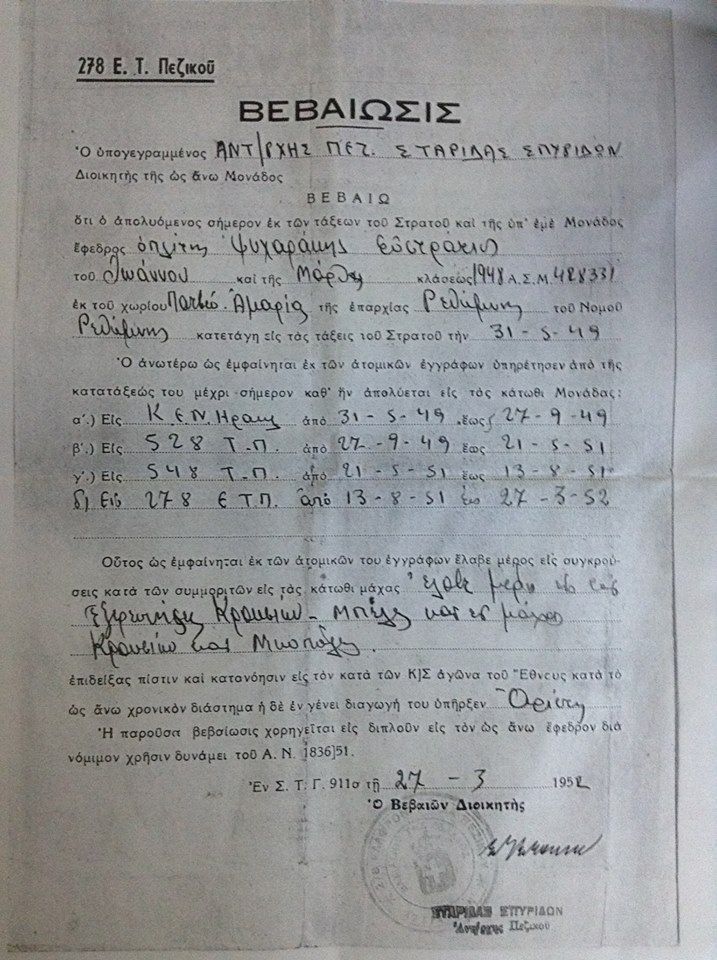 278 Ε. Τ. Πεζικοῦ
ΒΕΒΑΙΩΣΙΣ
Ὁ ὑπογεγραμμένος ΑΝΤ/ΡΧΗΣ ΠΕΖ. ΣΤΑΡΙΔΑΣ ΣΠΥΡΙΔΩΝ
Διοικητὴς τῆς ὡς ἄνω Μονάδος
ΒΕΒΑΙΩ
ὅτι ὁ ἀπολυόμενος σήμερον ἐκ τῶν τάξεων τοῦ Στρατοῦ καὶ τῆς ὑπ' ἐμὲ Μονάδος
ἔφεδρος ὁπλίτης Ψυχαράκης Εὐστράτιος
τοῦ Ἰωάννου καὶ τῆς κλάσεως 1948 Α.Σ.Μ. 428331
ἐκ τοῦ χωρίου τῆς ἐπαρχίας Ρεθύμνης τοῦ Νομοῦ
Ρεθύμνης κατετάγη εἰς τὰς τάξεις τοῦ Στρατοῦ τὴν 31-5-49
Ὁ ἀνωτέρω ὡς ἐμφαίνηται ἐκ τῶν ἀτομικῶν ἐγγράφων ὑπηρέτησεν ἀπὸ τῆς
κατατάξεώς του μέχρι σήμερον καθ' ἣν ἀπολύεται εἰς τὰς κάτωθι Μονάδας:
α'.) Εἰς Κ.Ε.Ν. Ηρακ ἀπὸ 31-5-49 ἕως 27-9-49
β'.) Εἰς 528 Τ.Π. ἀπὸ 27-9-49 ἕως 21-5-51
γ'.) Εἰς 548 Τ.Π. ἀπὸ 21-5-51 ἕως 13-8-51
δ) Εἰς 278 ΕΤΠ. ἀπὸ 13-8-51 ἕως 27-3-52
Οὗτος ὡς ἐμφαίνηται ἐκ τῶν ἀτομικῶν του ἐγγράφων ἔλαβε μέρος εἰς συγκρού-
σεις κατὰ τῶν συμμοριτῶν εἰς τὰς κάτωθι μάχας ἔλαβε μέρος εἰς τας
καὶ
καὶ
ἐπιδείξας πίστιν καὶ κατανόησιν εἰς τὸν κατὰ τῶν Κ]Σ ἀγῶνα τοῦ Ἔθνους κατὰ τὸ
ὡς ἄνω χρονικὸν διάστημα ἡ δὲ ἐν γένει διαγωγή του ὑπῆρξεν Ἀρίστη
Ἡ παροῦσα βεβαίωσις χορηγεῖται εἰς διπλοῦν εἰς τὸν ὡς ἄνω ἔφεδρον διὰ
νόμιμον χρῆσιν δυνάμει τοῦ Α. Ν. 1836]51.
Ἐν Σ. Τ. Γ. 911σ τῇ 27-3 1952
Ὁ Βεβαιῶν Διοικητὴς
ΣΤΑΡΙΔΑΣ ΣΠΥΡΙΔΩΝ
Ἀντ/ρχης Πεζικοῦ